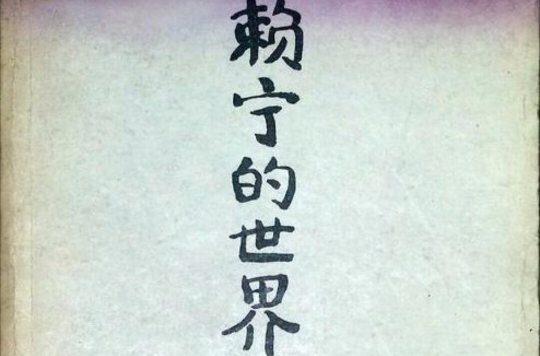 赖宁的世界